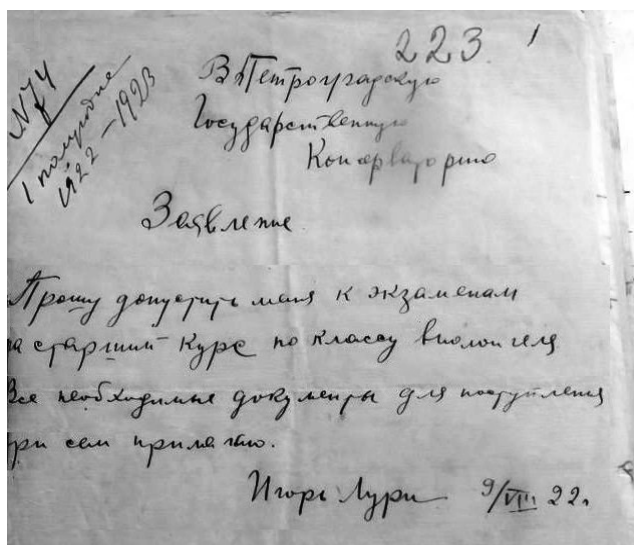 223. 1
N 74
1 полугодие
1922-1923
В Петроградскую
Государственную
Консерваторию
Заявление
Прошу допустить меня к экзаменам
на старший курс по классу виолончеля
Все необходимые документы для поступления
при сем прилагаю.
Игорь Лури 9/VIII 22г